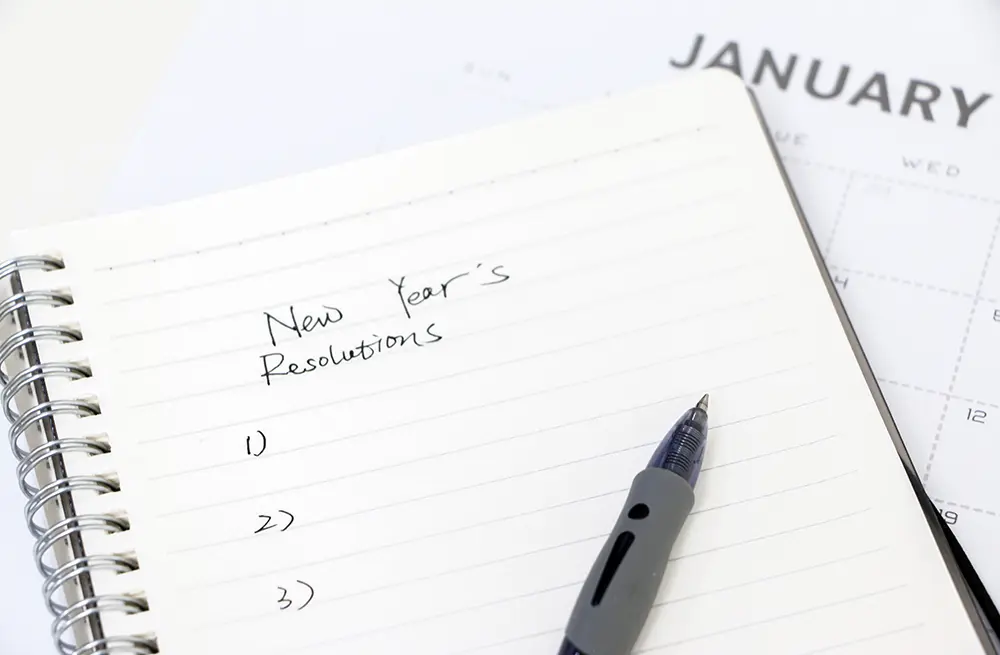 JANUARY
WED
New Year's
Resolutions
1)
2)
3)
12